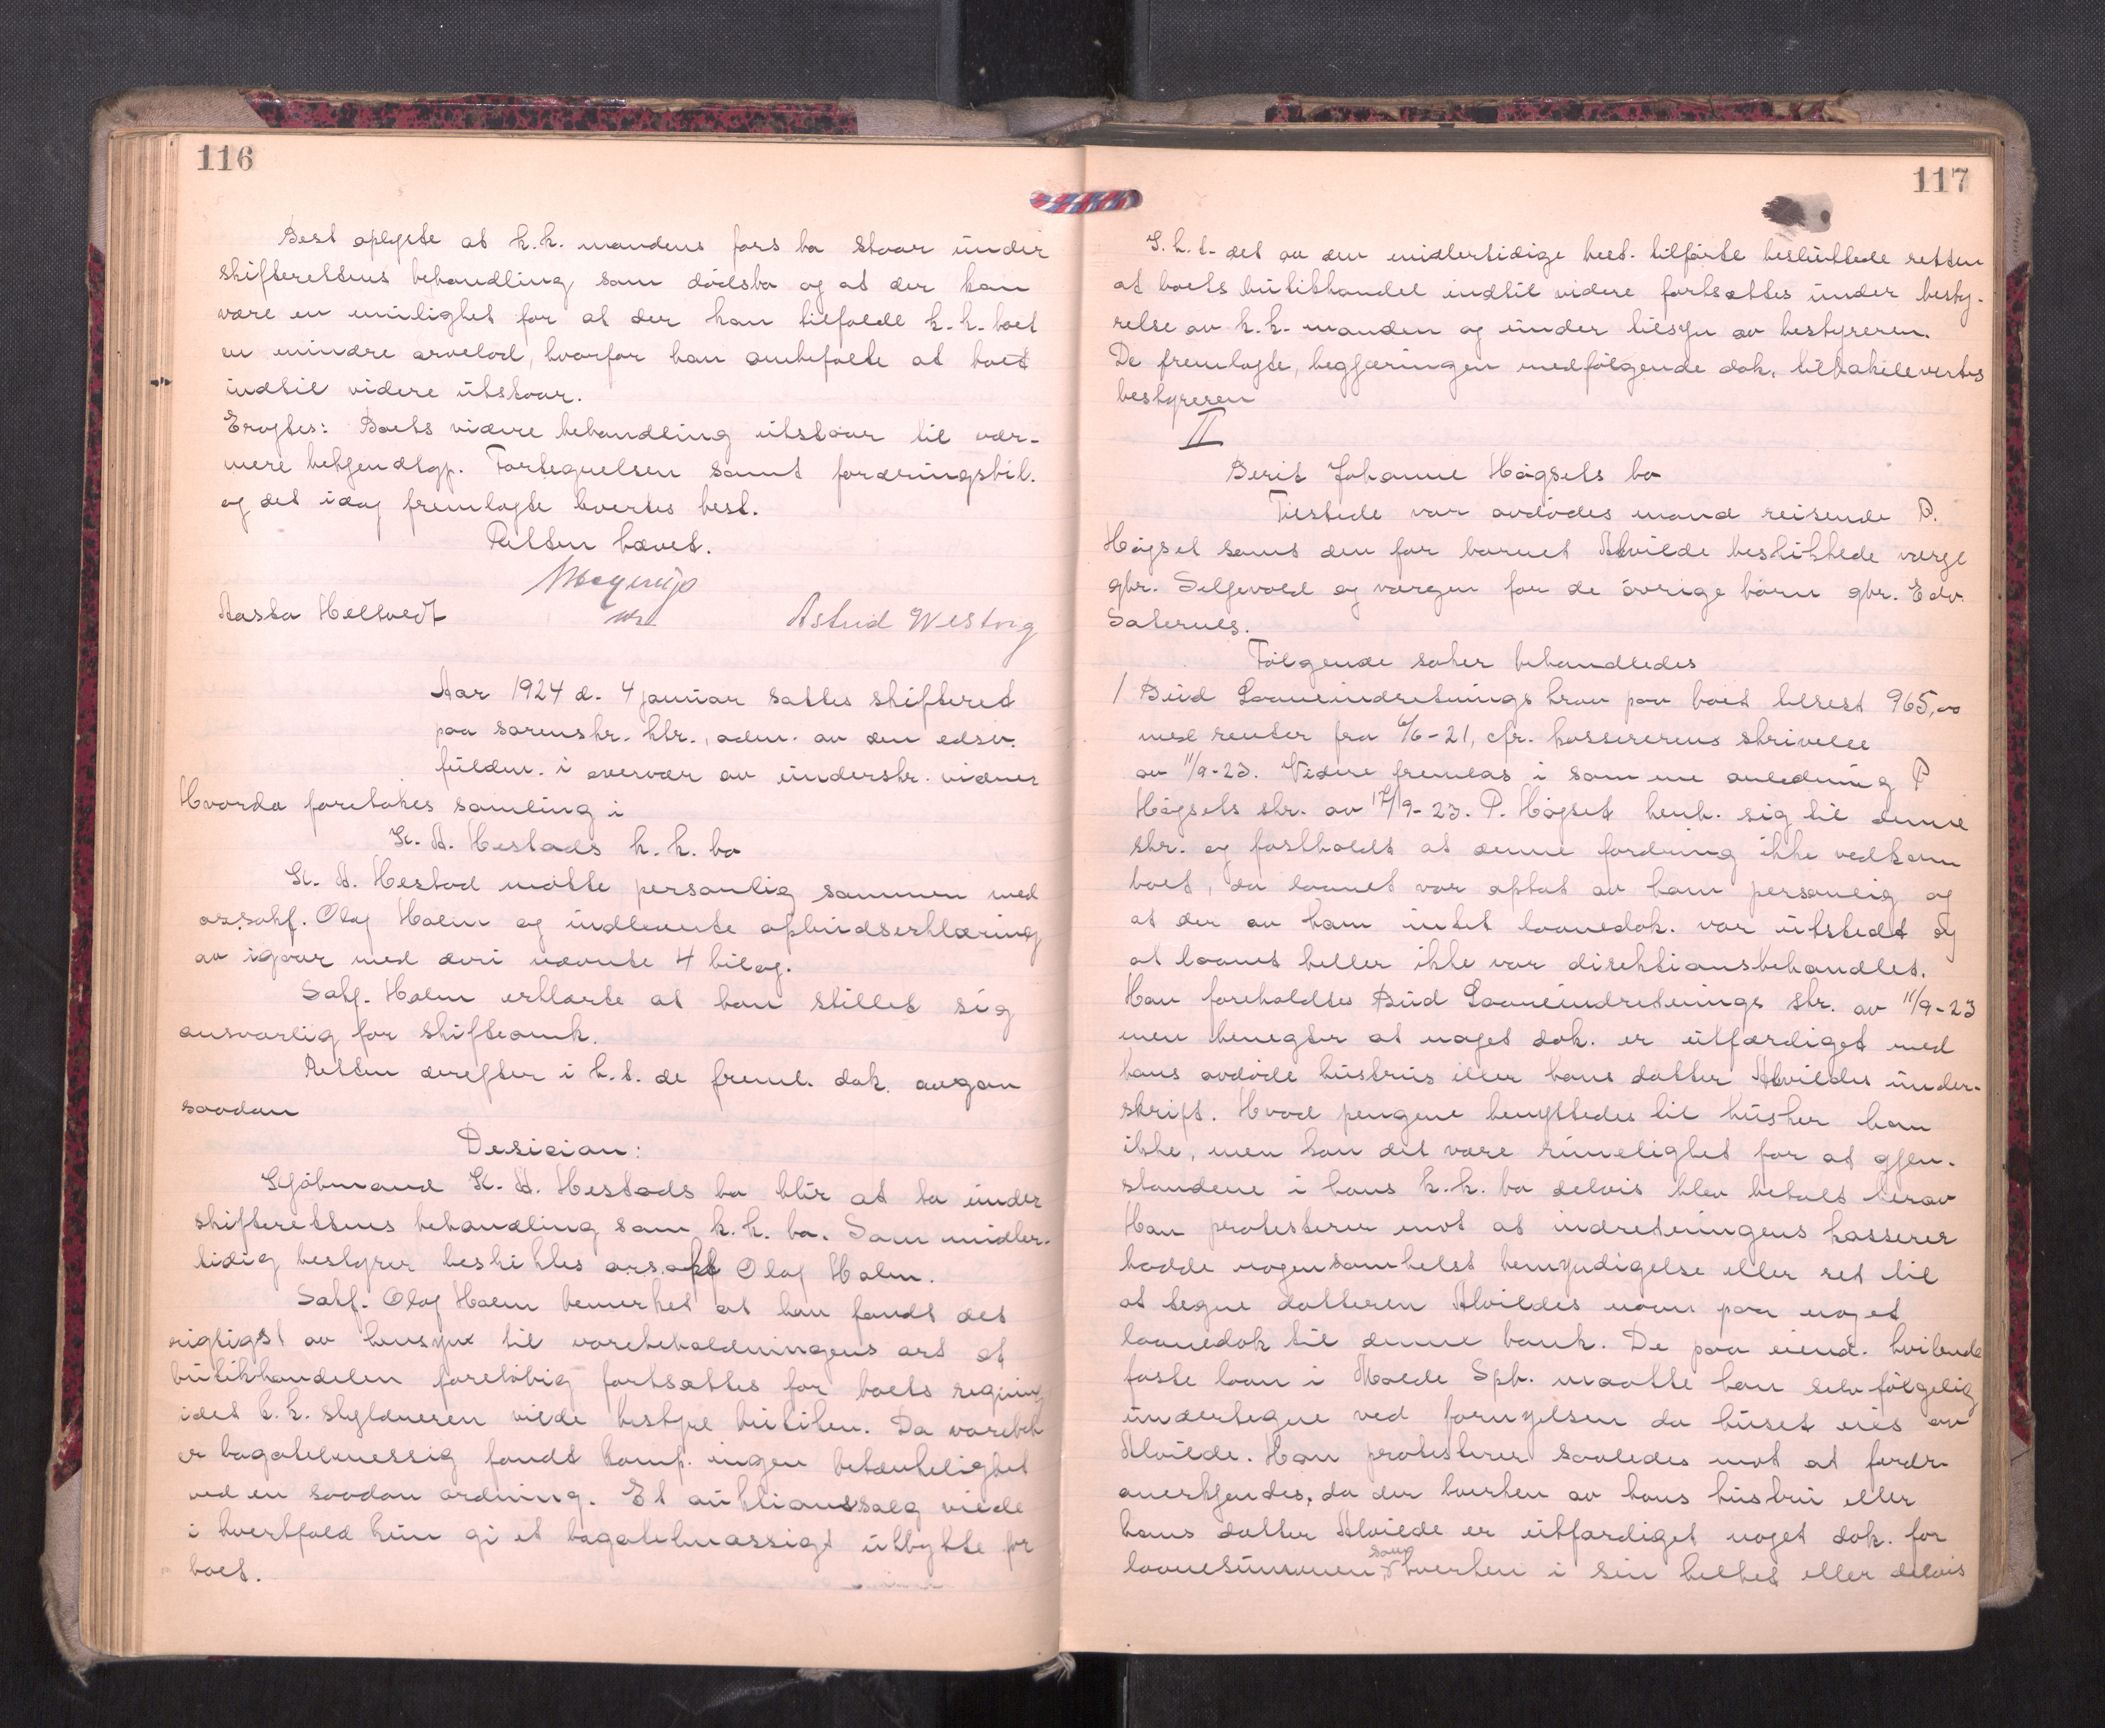 116
Best oplyste at k.k. mandens fars bo staar under
skifterettens behandling som dødsbo og at der kan
være en mulighet for at der kan tilfalde k.k. boet
en mindre arvelod, hvorfor han anbefalte at boet
indtil videre utstaar.
Eragtes: Boets videre behandling utstaar til nær-
mere bekjendtgj. Fortegnelsen samt fordringsbil.
og det idag fremlagte levertes best.
Retten hævet.
Aasta Heltvedt Astrid Westvig
Aar 1924 d. 4 januar sattes skifteret
paa sorenskr. ktr., adm. av den edsv.
fuldm. i overvær av underskr. vidner
Hvorda foretokes samling i
K. A. Hestads k.k. bo
K. A. Hestad møtte personlig sammen med
o.r.sakf. Olaf Holm og indleverte opbudserklæring
av igaar med deri nævnte 4 bilag.
Sakf. Holm erklærte at han stillet sig
ansvarlig for skifteomk.
Retten derefter i h.t. de freml. dok. avgav
saadan
Desision:
Kjøbmand K. A. Hestads bo blir at ta under
skifterettens behandling som k.k. bo. Som midler-
tidig bestyrer beskikkes o.r.sakf Olaf Holm.
Sakf. Olaf Holm bemerket at han fandt det
rigtigst av hensyn til varebeholdningens art at
butikhandelen foreløbig fortsættes for boets regning
idet k.k. skyldneren vilde bestyre butiken. Da varebeh
er bagatelmessig fandt komp. ingen betænkelighet
ved en saadan ordning. Et auktionssalg vilde
i hvertfald kun gi et bagatelmæssigt utbytte for
boet.
117
I h.t. det av den midlertidige best. tilførte besluttede retten
at boets butikhandel indtil videre fortsættes under besty-
relse av k.k. manden og under tilsyn av bestyreren.
De fremlagte, begjæringen medfølgende dok. tilbakelevertes
bestyreren
II
Berit Johanne Høgsets bo
Tilstede var avdødes mand reisende P.
Høgset samt den for barnet Alvilde beskikkede verge
gbr. Seljevold og vergen for de øvrige børn gbr. Edv.
Saternes.
Følgende saker behandledes
1 Bud Laaneindretnings krav paa boet tilrest 965,00
med renter fra 6/6-21, cfr. kassererens skrivelse
av 11/9-23. Videre fremlas i samme anledning P
Høgsets skr. av 17/9-23. P. Høgset henh. sig til denne
skr. og fastholdt at denne fordring ikke vedkom
boet, da laanet var optat av ham personlig og
at der av ham intet laanedok. var utstedt og
at laanet heller ikke var direktionsbehandlet.
Han foreholdtes Bud Laaneindretnings skr. av 11/9-23
men benegter at noget dok. er utfærdiget med
hans avdøde hustrus eller hans datter Alvildes under-
skrift. Hvad pengene benyttedes til husker han
ikke, men kan det være rimelighet for at gjen-
standene i hans k.k. bo delvis blev betalt herav
Han protesterer mot at indretningens kasserer
hadde nogensomhelst bemyndigelse eller ret til
at tegne datteren Alvildes navn paa noget
laanedok til denne bank. De paa eiend. hvilende
faste laan i Molde Spb. maatte han selvfølgelig
undertegne ved fornyelsen da huset eies av
Alvilde. Han protesterer saaledes mot at fordr.
anerkjendes, da der hverken av hans hustru eller
hans datter Alvilde er utfærdiget noget dok. for
laanesummen som hverken i sin helhet eller delvis